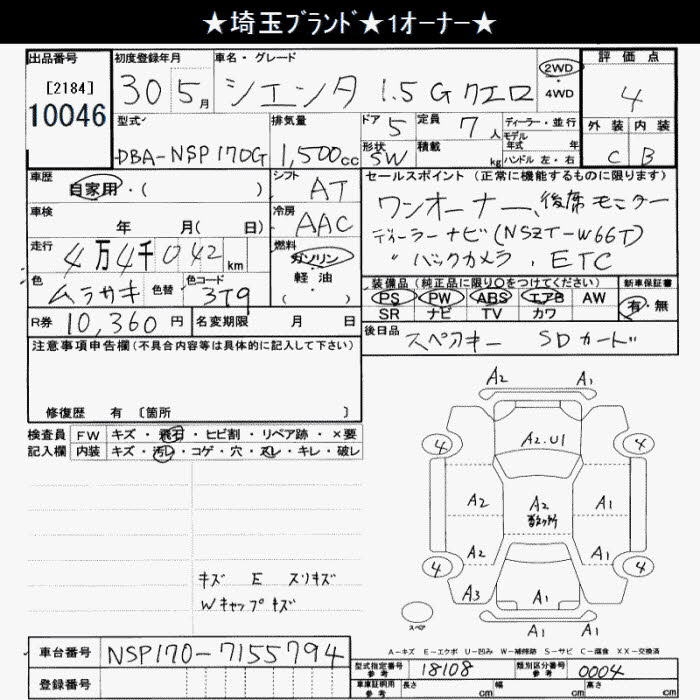 ★埼玉ﾌﾞﾗﾝﾄﾞ★1オーナー★
出品番号
[2184]
10046
初度登録年月
30 5月
車名・グレード
シエンタ 1.5G クエロ
2WD
・
4WD
評価点
4
外装 内装
C B
型式
DBA-NSP170G
排気量
1,500cc
ドア 5
定員 7人
形状 SW
積載 kg
ディーラー・並行
モデル
年式 年
ハンドル 左・右
車歴
自家用・( )
シフト AT
車検
年 月( 日)
冷房 AAC
走行
4万4千042km
燃料
ガソリン
軽油
( )
色
ムラサキ
色替
色コード
3T9
R券 10,360円
名変期限 月 日
セールスポイント(正常に機能するものに限ります)
ワンオーナー、後席モニター
ディーラーナビ(NSZT-W66T)
〃 バックカメラ、ETC
装備品(純正品に限り○をつけてください)
PS PW ABS エアB AW
SR ナビ TV カワ
新車保証書
有・無
後日品
スペアキー SDカード
注意事項申告欄(不具合内容等は具体的に記入して下さい)
修復歴 有 〔箇所 〕
検査員 FW キズ・飛石・ヒビ割・リペア跡・×要
記入欄 内装 キズ・汚レ・コゲ・穴・スレ・キレ・破レ
キズ E スリキズ
Wキャップキズ
A2 A1
4 4
A2.U1
A2 A2 A1
A2 A1
4 4
A3 A1
A1 A1
スペア
A－キズ E－エクボ U－凹み W－補修跡 S－サビ C－腐食 XX－交換済
車台番号 NSP170-7155794
登録番号
型式指定番号
参考
18108
類別区分番号
参考
0004
車庫証明用
参考
長さ cm 幅 cm 高さ cm